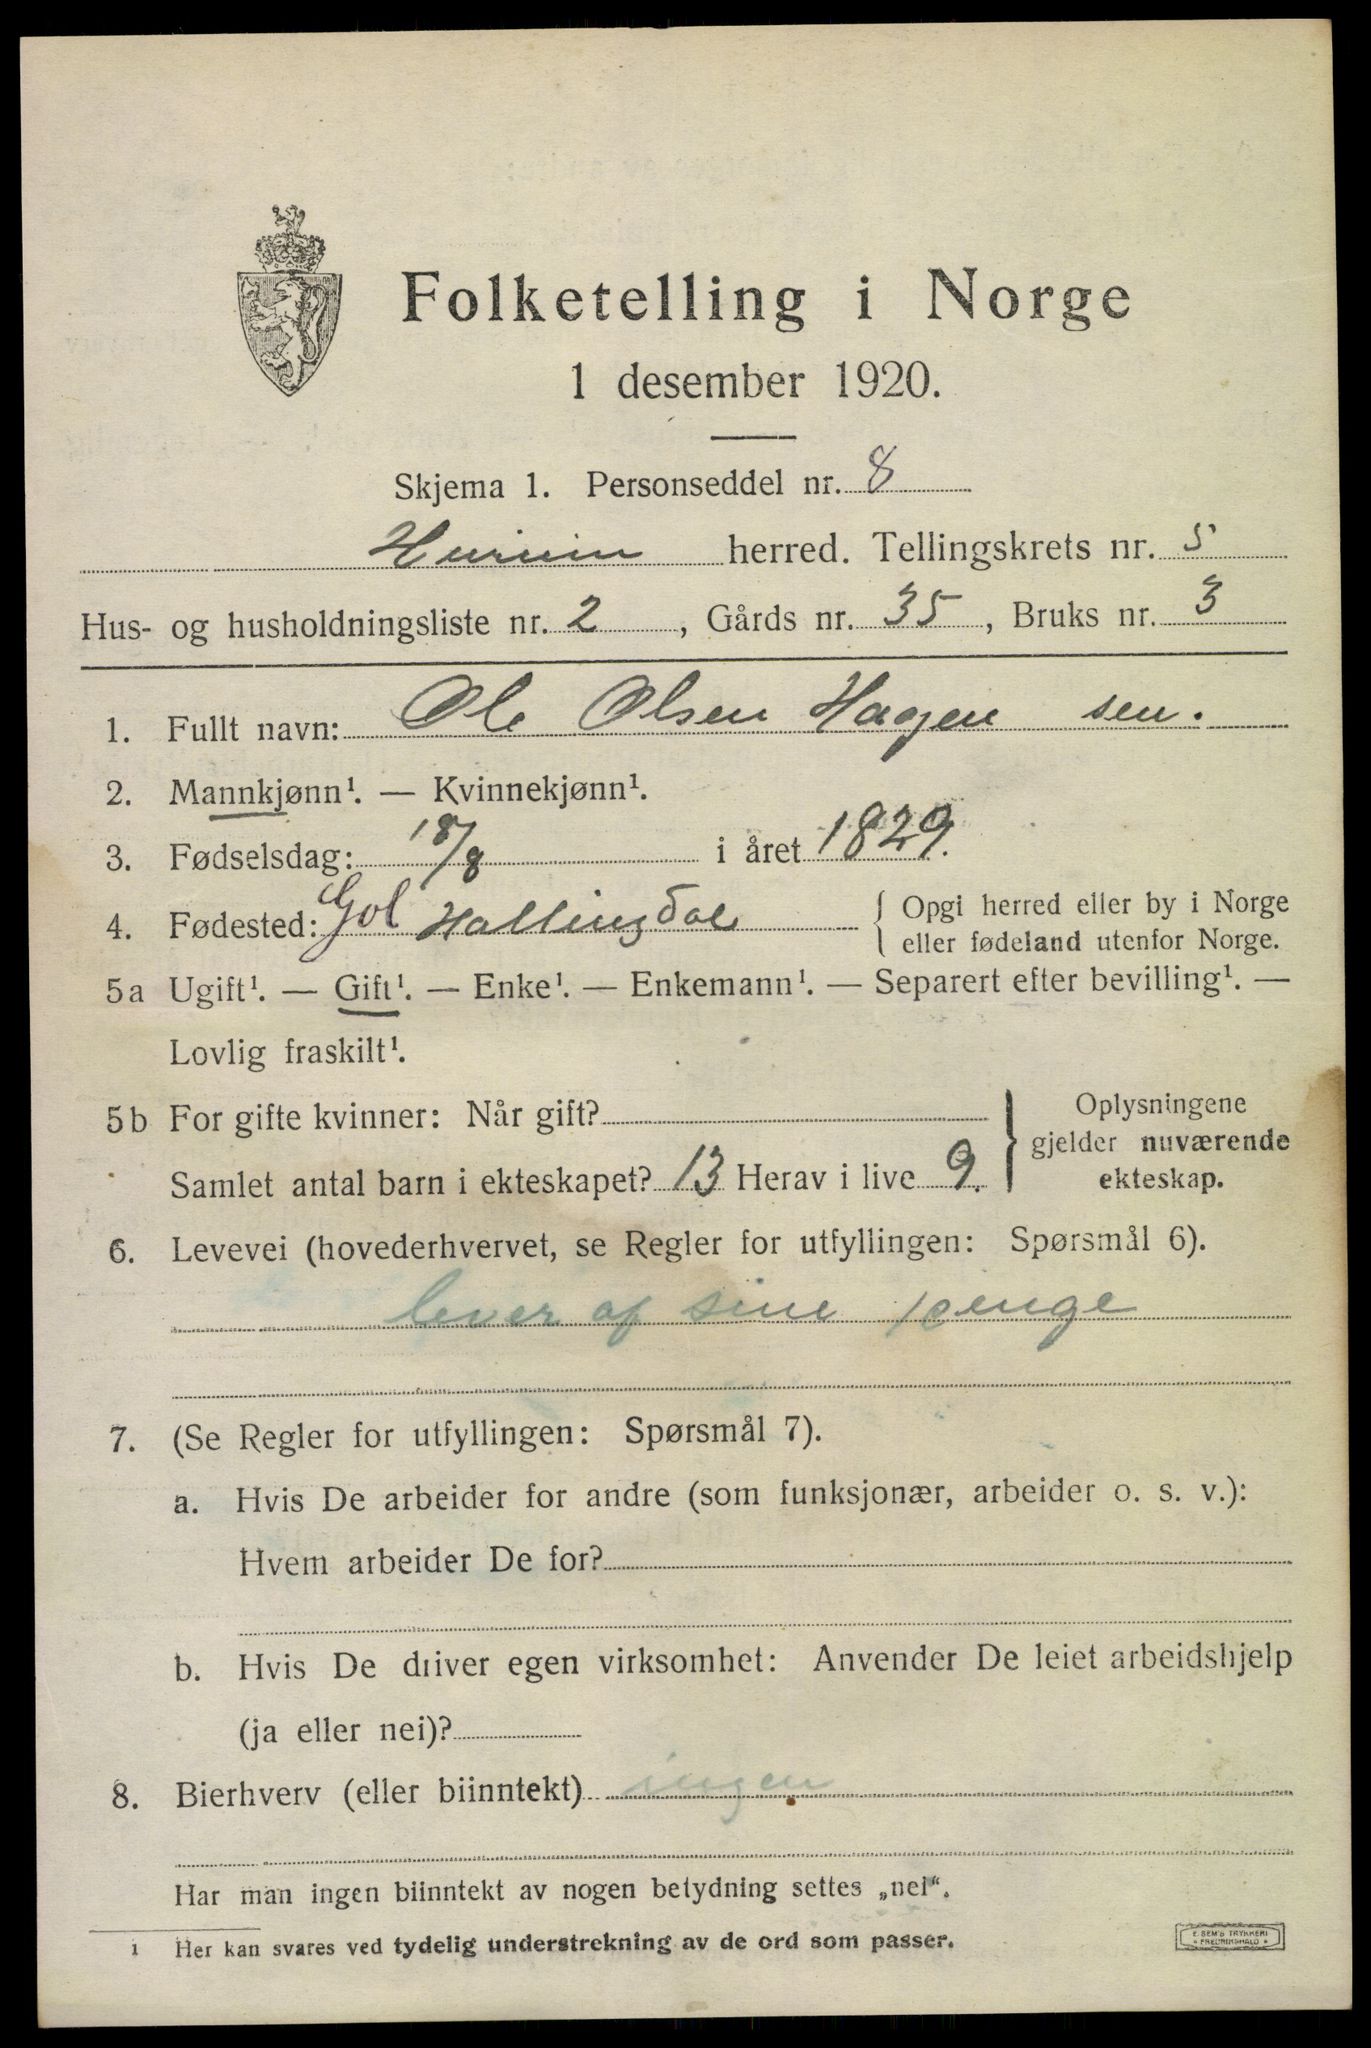 Folketelling i Norge
1 desember 1920.
Skjema 1. Personseddel nr. 8
Hurum herred. Tellingskrets nr. 5
Hus- og husholdningsliste nr. 2, Gårds nr. 35, Bruks nr. 3
1. Fullt navn: Ole Olsen Hagen sen.
2. Mannkjønn¹. — Kvinnekjønn¹.
3. Fødselsdag: 18/8 i året 1829.
4. Fødested: Gol Hallingdal { Opgi herred eller by i Norge
eller fødeland utenfor Norge.
5a Ugift¹. — Gift¹. — Enke¹. — Enkemann¹. — Separert efter bevilling¹. —
Lovlig fraskilt¹.
5b For gifte kvinner: Når gift? } Oplysningene
gjelder nuværende
ekteskap.
Samlet antal barn i ekteskapet? 13 Herav i live 9.
6. Levevei (hovederhvervet, se Regler for utfyllingen: Spørsmål 6).
lever af sine penge
7. (Se Regler for utfyllingen: Spørsmål 7).
a. Hvis De arbeider for andre (som funksjonær, arbeider o. s. v.):
Hvem arbeider De for?
b. Hvis De driver egen virksomhet: Anvender De leiet arbeidshjelp
(ja eller nei)?
8. Bierhverv (eller biinntekt) ingen
Har man ingen biinntekt av nogen betydning settes „nei“.
1 Her kan svares ved tydelig understrekning av de ord som passer.
E. SEM'S TRYKKERI
* FREDRIKSHALD *